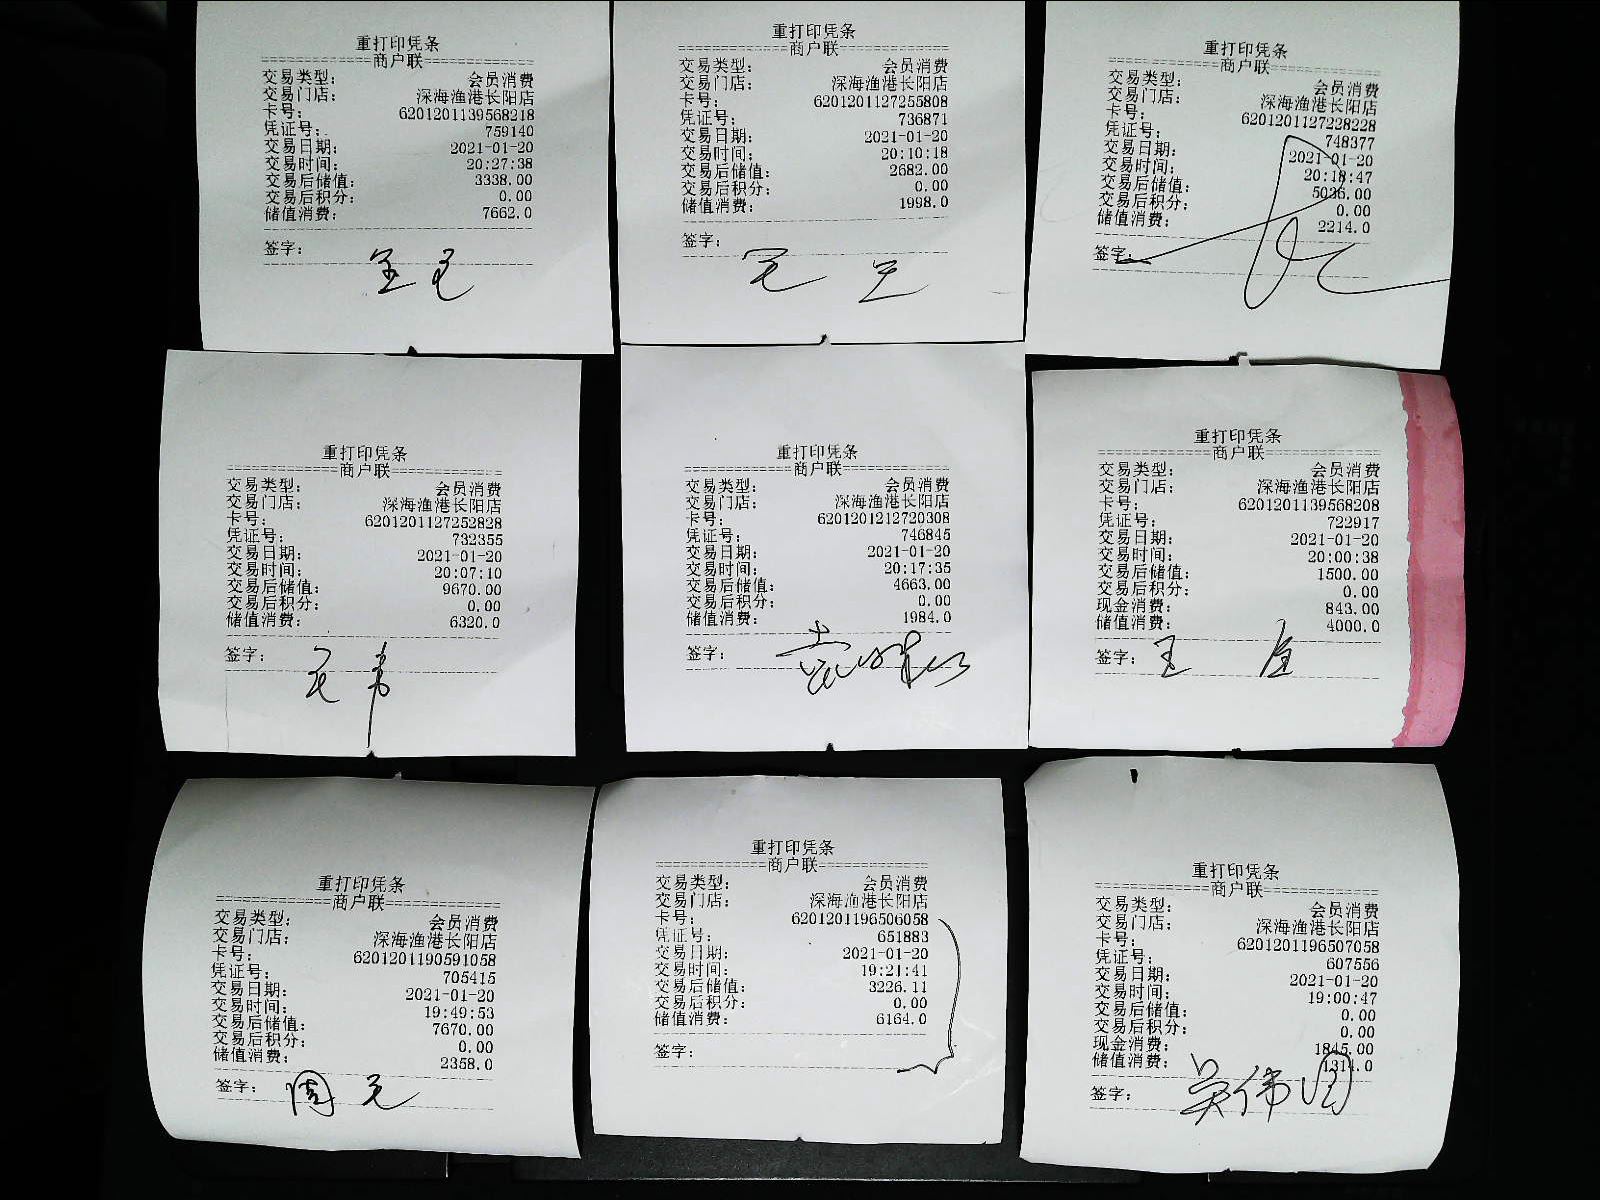 重打印凭条
================商户联================
交易类型： 会员消费
交易门店： 深海渔港长阳店
卡号： 6201201139568218
凭证号： 759140
交易日期： 2021-01-20
交易时间： 20:27:38
交易后储值： 3338.00
交易后积分： 0.00
储值消费： 7662.0
签字：
重打印凭条
================商户联================
交易类型： 会员消费
交易门店： 深海渔港长阳店
卡号： 6201201127255808
凭证号： 736871
交易日期： 2021-01-20
交易时间： 20:10:18
交易后储值： 2682.00
交易后积分： 0.00
储值消费： 1998.0
签字：
重打印凭条
================商户联================
交易类型： 会员消费
交易门店： 深海渔港长阳店
卡号： 6201201127228228
凭证号： 748377
交易日期： 2021-01-20
交易时间： 20:18:47
交易后储值： 5036.00
交易后积分： 0.00
储值消费： 2214.0
签字：
重打印凭条
================商户联================
交易类型： 会员消费
交易门店： 深海渔港长阳店
卡号： 6201201127252828
凭证号： 732355
交易日期： 2021-01-20
交易时间： 20:07:10
交易后储值： 9670.00
交易后积分： 0.00
储值消费： 6320.0
签字：
重打印凭条
================商户联================
交易类型： 会员消费
交易门店： 深海渔港长阳店
卡号： 6201201212720308
凭证号： 746845
交易日期： 2021-01-20
交易时间： 20:17:35
交易后储值： 4663.00
交易后积分： 0.00
储值消费： 1984.0
签字：
重打印凭条
================商户联================
交易类型： 会员消费
交易门店： 深海渔港长阳店
卡号： 6201201139568208
凭证号： 722917
交易日期： 2021-01-20
交易时间： 20:00:38
交易后储值： 1500.00
交易后积分： 0.00
现金消费： 843.00
储值消费： 4000.0
签字：
重打印凭条
================商户联================
交易类型： 会员消费
交易门店： 深海渔港长阳店
卡号： 6201201190591058
凭证号： 705415
交易日期： 2021-01-20
交易时间： 19:49:53
交易后储值： 7670.00
交易后积分： 0.00
储值消费： 2358.0
签字：
重打印凭条
================商户联================
交易类型： 会员消费
交易门店： 深海渔港长阳店
卡号： 6201201196506058
凭证号： 651883
交易日期： 2021-01-20
交易时间： 19:21:41
交易后储值： 3226.11
交易后积分： 0.00
储值消费： 6164.0
签字：
重打印凭条
================商户联================
交易类型： 会员消费
交易门店： 深海渔港长阳店
卡号： 6201201196507058
凭证号： 607556
交易日期： 2021-01-20
交易时间： 19:00:47
交易后储值： 0.00
交易后积分： 0.00
现金消费： 1845.00
储值消费： 1314.0
签字： 吴伟国